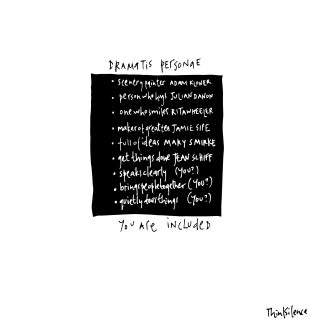 DRAMATIS PERSONAE
• scenery painter ADAM KLONER
• person who lays JULIAN DANON
• one who smiles RITA WHEELER
• maker of great tea JAMIE SIPE
• full of ideas MARY SMIRKE
• get things done JEAN SCHIFF
• speaks clearly (YOU?)
• brings people together (YOU?)
• quietly does things (YOU?)
YOU ARE INCLUDED
Thinksilence